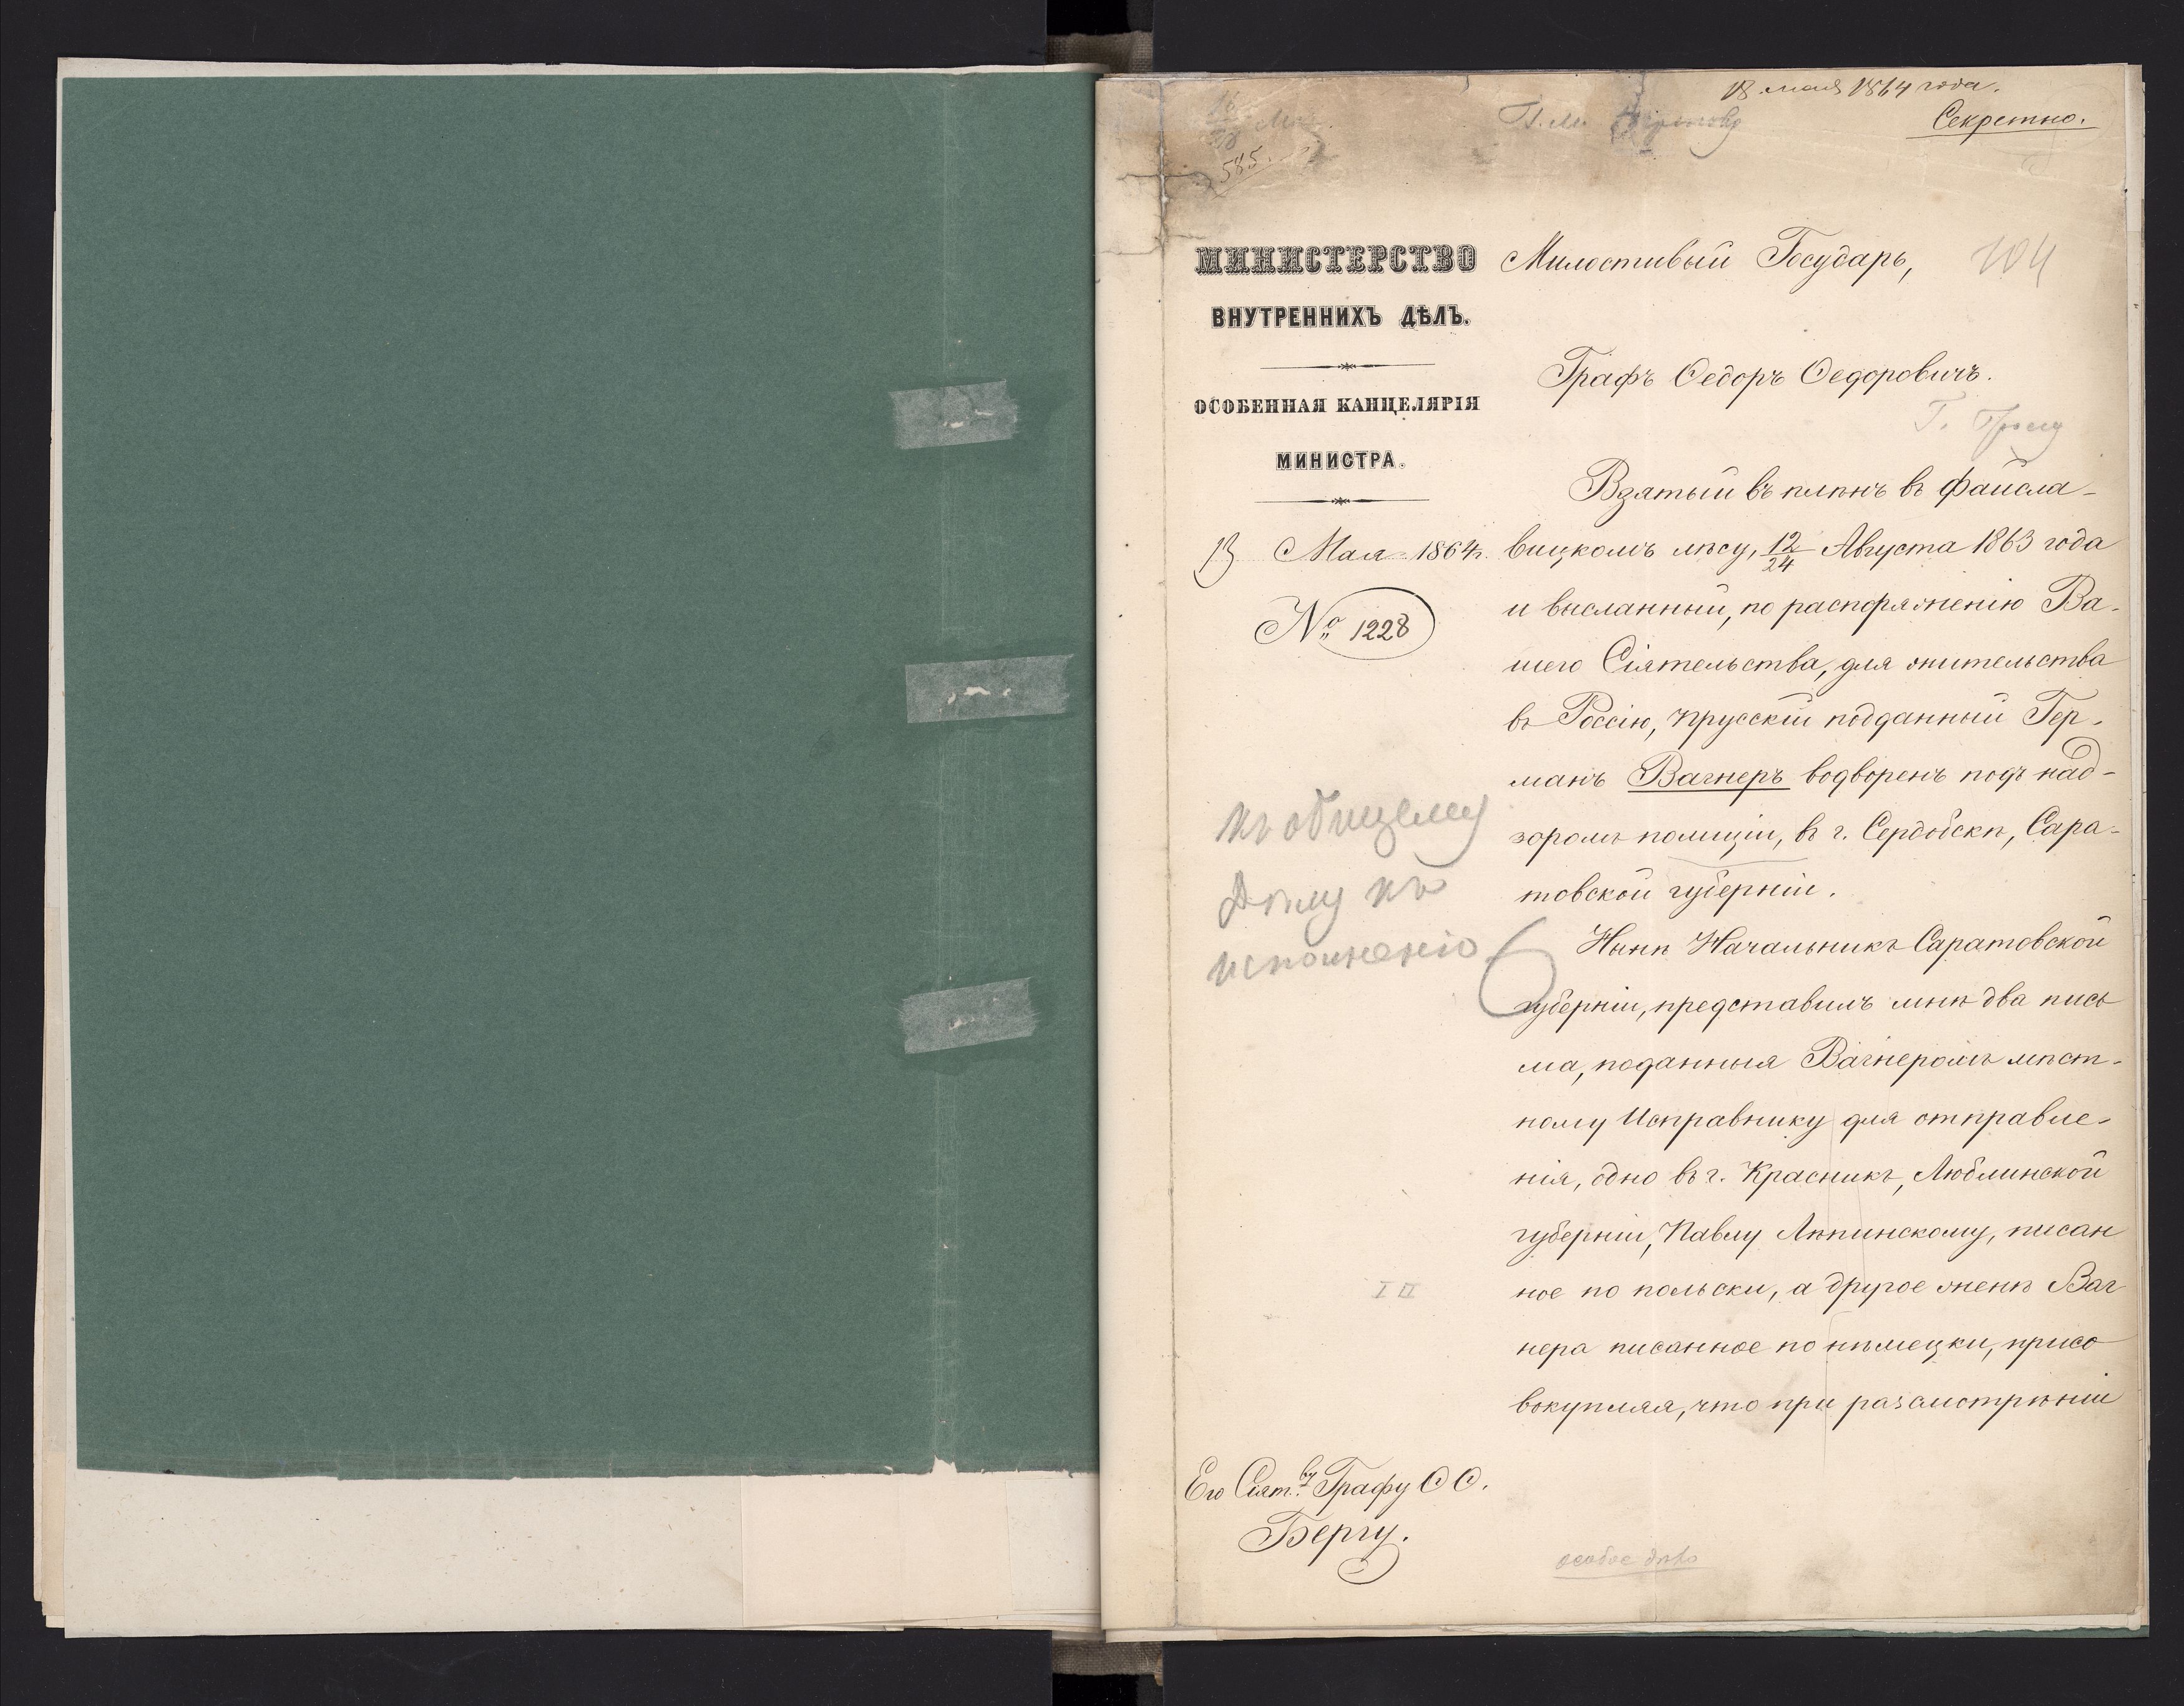 18 мая 1864 года.
Секретно.
585.
МИНИСТЕРСТВО
ВНУТРЕННИХЪ ДѢЛЪ.
ОСОБЕННАЯ КАНЦЕЛЯРІЯ
МИНИСТРА.
13 Мая 1864 г.
№ 1228
къ общему
дѣлу къ
исполненію
I II
Его Сіят.ву Графу Ѳ Ѳ.
Бергу.
Милостивый Государь,
104
Графъ Ѳедоръ Ѳедоровичъ.
Взятый въ плѣнъ въ Файсла-
вицкомъ лѣсу, 12/24 Августа 1863 года
и высланный, по распоряженію Ва-
шего Сіятельства, для жительства
въ Россію, прусскій подданный Гер-
манъ Вагнеръ водворенъ подъ над-
зоромъ полиціи, въ г. Сердобскѣ, Сара-
товской губерніи.
Нынѣ Начальникъ Саратовской
губерніи, представилъ мнѣ два пись
ма, поданныя Вагнеромъ мѣст-
ному Исправнику для отправле-
нія, одно въ г. Красникъ, Люблинской
губерніи, Павлу Лѣпинскому, писан
ное по польски, а другое женѣ Ваг
нера писанное по нѣмецки, присо
вокупляя, что при разсмотрѣніи
особое дѣло